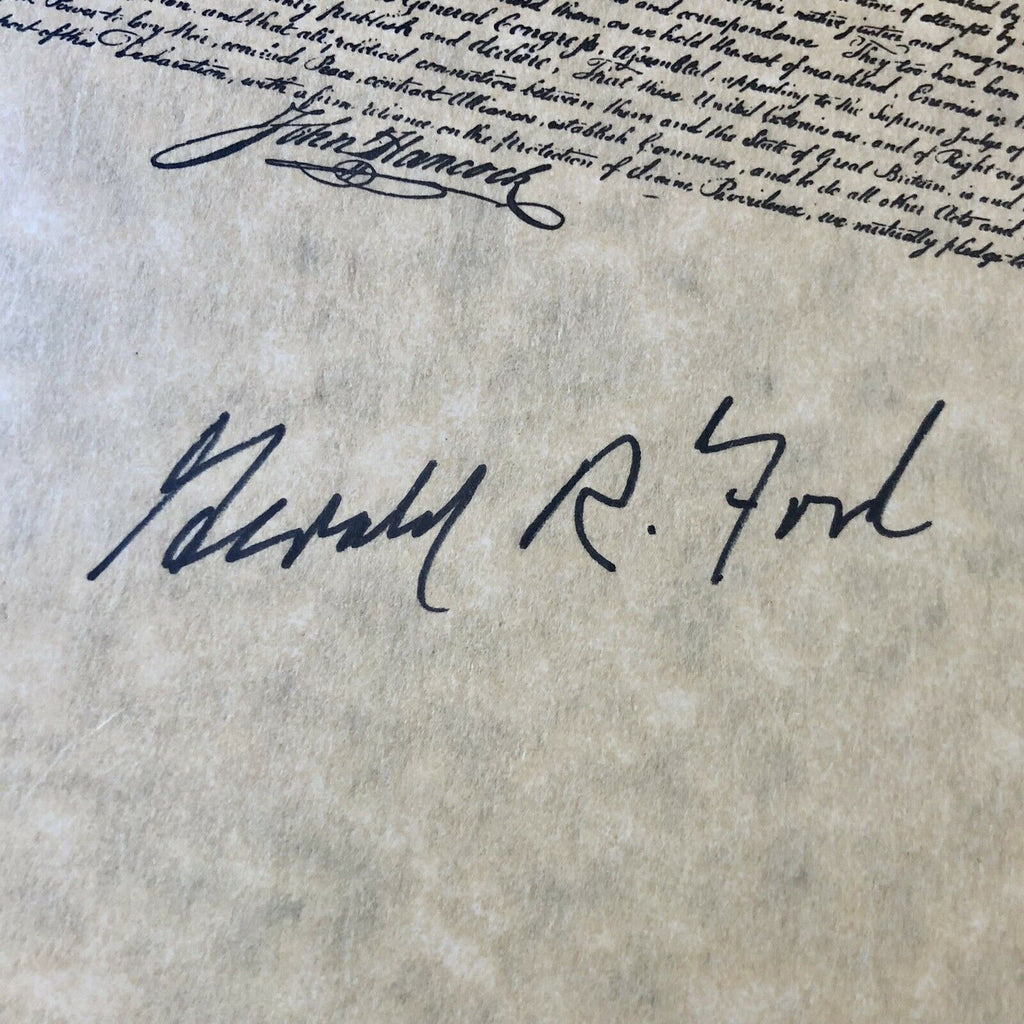 time of attempts by
their native justice and
and correspondence They too have been
them, as we hold the rest of mankind, Enemies in
General Congress, Assembled, appealing to the Supreme Judge of
publish and declare, That these United Colonies are, and of Right
and that all political connection between them and the State of Great Britain, is and
Power to levy War, conclude Peace, contract Alliances, establish Commerce, and to do all other Acts and
of this Declaration, with a firm reliance on the protection of divine Providence, we mutually pledge to
John Hancock
Gerald R. Ford